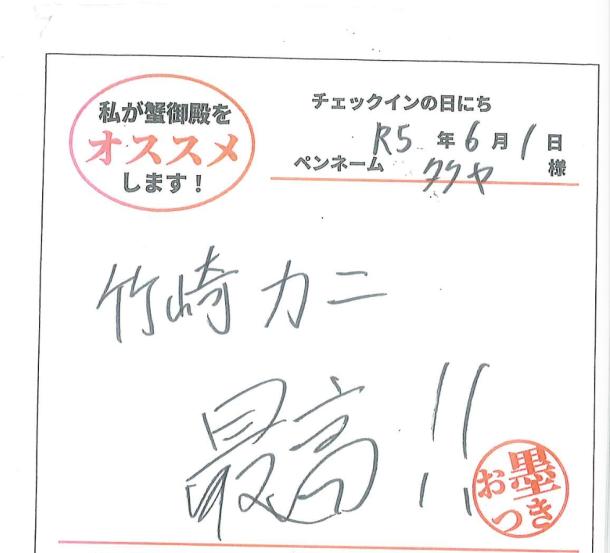 私が蟹御殿を
オススメ
します！
チェックインの日にち
R5年6月1日
ペンネーム タクヤ 様
竹崎カニ
最高!!
お墨
つき